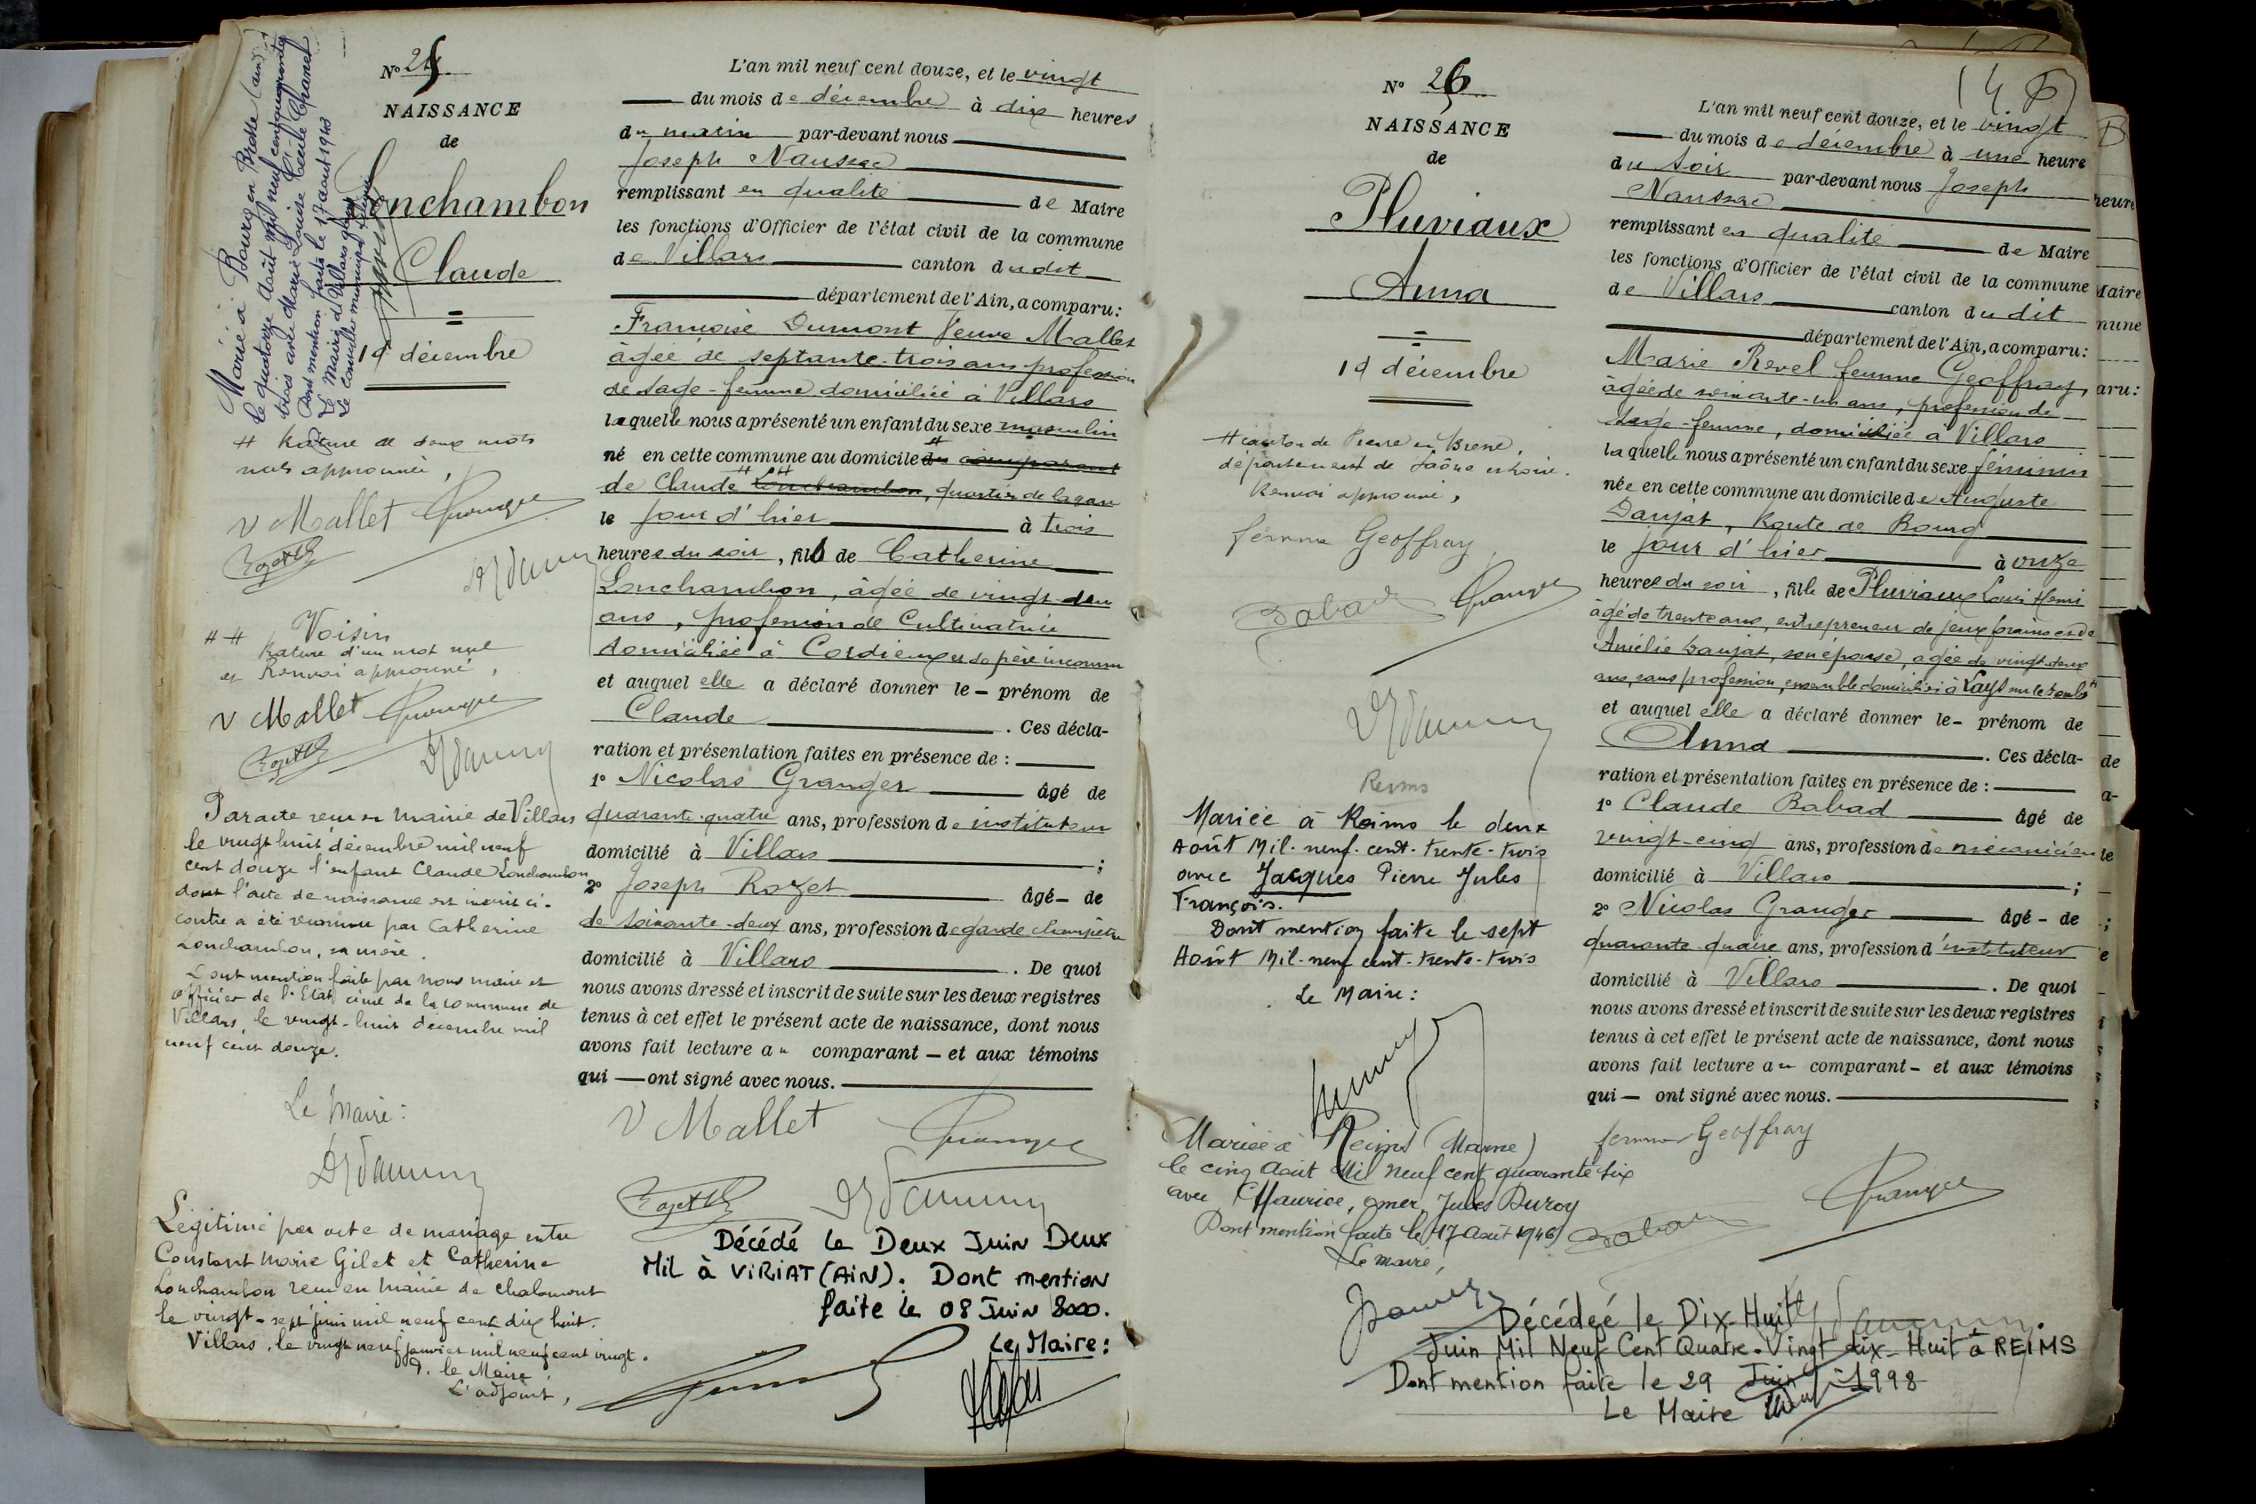 Nº 25
NAISSANCE
de
Lonchambon
Claude
19 décembre
Marié à Bourg en Bresse (Ain)
le quatorze Août mil neuf cent quarante
trois avec Marie Louise Cécile Chanel
Dont mention faite le 17 août 1943
Le Maire de Villars
# Rature de deux mots
nuls approuvée,
V Mallet Granger
Rozet
## Voisin
Rature d'un mot nul
et Renvoi approuvé,
V Mallet Granger
Rozet
Par acte reçu en mairie de Villars
le vingt huit décembre mil neuf
cent douze l'enfant Claude Lonchambon
dont l'acte de naissance est inscrit ci-
contre a été reconnu par Catherine
Lonchambon, sa mère.
Dont mention faite par nous maire et
officier de l'Etat civil de la commune de
Villars, le vingt-huit décembre mil
neuf cent douze.
Le Maire:
Légitimé par acte de mariage entre
Constant Marie Gilet et Catherine
Lonchambon reçu en mairie de Chalamont
le vingt-sept juin mil neuf cent dix huit.
Villars, le vingt neuf janvier mil neuf cent vingt.
P. le Maire
L'adjoint,
L'an mil neuf cent douze, et le vingt
du mois de décembre à dix heures
du matin par-devant nous
Joseph Naussac
remplissant en qualité de Maire
les fonctions d'Officier de l'état civil de la commune
de Villars canton dudit
département de l'Ain, a comparu:
Françoise Dumont Veuve Mallet
âgée de septante-trois ans profession
de sage-femme domiciliée à Villars
laquelle nous a présenté un enfant du sexe masculin
né en cette commune au domicile # du comparant
de Claude ## Lonchambon, quartier de la gare
le jour d'hier à trois
heures du soir, fils de Catherine
Lonchambon, âgée de vingt-deux
ans, profession de Cultivatrice
domiciliée à Cordieux et de père inconnu
et auquel elle a déclaré donner le - prénom de
Claude . Ces décla-
ration et présentation faites en présence de :
1º Nicolas Granger âgé de
quarante-quatre ans, profession d'instituteur
domicilié à Villars ;
2º Joseph Rozet âgé - de
de soixante-deux ans, profession de garde champêtre
domicilié à Villars . De quoi
nous avons dressé et inscrit de suite sur les deux registres
tenus à cet effet le présent acte de naissance, dont nous
avons fait lecture au comparant - et aux témoins
qui - ont signé avec nous.
V Mallet Granger
Rozet
Décédé le Deux Juin Deux
Mil à VIRIAT (AIN). Dont mention
faite le 08 Juin 2000.
Le Maire:
Nº 26
NAISSANCE
de
Pluviaux
Anna
19 décembre
# canton de Pierre en Bresse,
département de Saône et Loire.
Renvoi approuvé,
femme Geoffray
Babad Granger
Reims
Mariée à Reims le deux
Août Mil-neuf-cent-trente-trois
avec Jacques Pierre Jules
François.
Dont mention faite le sept
Août Mil-neuf cent-trente-trois
Le Maire:
Mariée à Reims (Marne)
le cinq Août Mil neuf cent quarante six
avec Maurice, Omer, Jules Duroy
Dont mention faite le 17 Août 1946
Le maire,
L'an mil neuf cent douze, et le vingt
du mois de décembre à une heure
du soir par-devant nous Joseph
Naussac
remplissant en qualité de Maire
les fonctions d'Officier de l'état civil de la commune
de Villars canton du dit
département de l'Ain, a comparu:
Marie Revel femme Geoffray,
âgée de soixante-un ans, profession de
sage-femme, domiciliée à Villars
laquelle nous a présenté un enfant du sexe féminin
née en cette commune au domicile de Auguste
Danjat, Route de Bourg
le jour d'hier à onze
heures du soir, fille de Pluviaux Louis Henri
âgé de trente ans, entrepreneur de jeux forains et de
Amélie Danjat, son épouse, âgée de vingt-deux
ans, sans profession, ensemble domiciliés à Lays sur le Doubs #
et auquel elle a déclaré donner le - prénom de
Anna . Ces décla-
ration et présentation faites en présence de :
1º Claude Babad âgé de
vingt-cinq ans, profession de mécanicien
domicilié à Villars ;
2º Nicolas Granger âgé - de
quarante-quatre ans, profession d'instituteur
domicilié à Villars . De quoi
nous avons dressé et inscrit de suite sur les deux registres
tenus à cet effet le présent acte de naissance, dont nous
avons fait lecture au comparant - et aux témoins
qui - ont signé avec nous.
femme Geoffray
Granger
Babad
Décédée le Dix-Huit
Juin Mil Neuf Cent Quatre-Vingt dix-Huit à REIMS
Dont mention faite le 29 Juin 1998
Le Maire